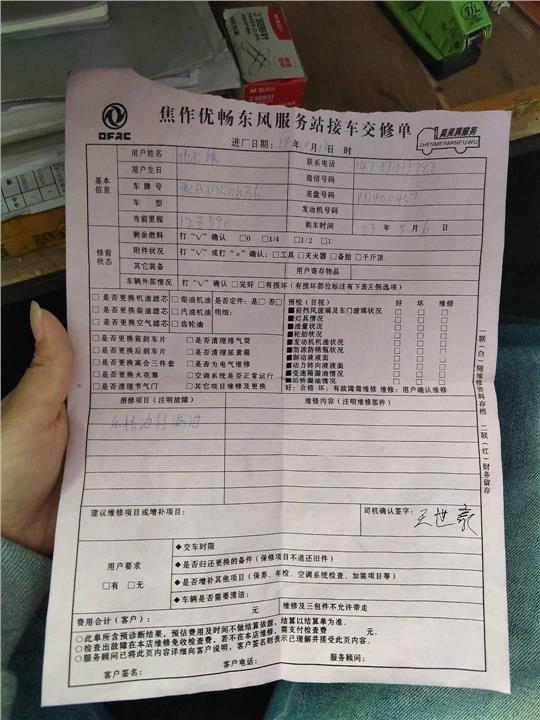 DFAC
焦作优畅东风服务站接车交修单
真美满服务
ZHENMEIMANFUWU
进厂日期: 年 月 日 时
基本信息
用户姓名
联系电话
用户生日
微信号码
车牌号
底盘号码
车 型
发动机号码
当前里程 123590
购车时间 23年5月6日
修前状态
剩余燃料 打“√”确认 □0 □1/4 □1/2 □1
附件状况 打“√”或打“×”确认：□工具 □灭火器 □备胎 □千斤顶
其它装备
用户寄存物品
车辆外部情况 打“√”确认 □完好 □有损坏(有损坏部位标注有下表左侧选项)
□是否更换机油滤芯 □柴油机油 是否定件：是 □否□
□是否更换柴油滤芯 □汽油机油 明细：
□是否更换空气滤芯 □齿轮油
□是否更换前刹车片 □是否清理排气筒
□是否更换后刹车片 □是否清理尿素箱
□是否更换离合三件套 □是否为电气维修
□是否更换火花塞 □空调系统是否正常运行
□是否清理节气门 □其它项目维修及更换
预检(目视) 好 坏 维修
■前挡风玻璃及车门玻璃状况 □ □ □
■灯具情况 □ □ □
■油量状况 □ □ □
■轮胎状况 □ □ □
■发动机机油状况 □ □ □
■防冻防锈瓶状况 □ □ □
■制动液液面 □ □ □
■动力转向液液面 □ □ □
■变速箱漏油情况 □ □ □
■后桥漏油情况 □ □ □
好：合格 坏：有故障需维修 维修：用户确认维修
报修项目(注明故障)
维修内容(注明维修部件)
漏油
建议维修项目或增补项目：
司机确认签字： 王世豪
用户要求
□有 □无
◆交车时限
◆是否归还更换的备件(保修项目不退还旧件)
◆是否增补其他项目(保养、年检、空调系统检查、加装项目等)
◆车辆是否需要清洁：
费用合计(客户)： 元
维修及三包件不允许带走
○此单所含预诊断结果，预估费用及时间不做结算依据，结算以结算单为准。
○检查出故障在本店维修免收检查费，若不在本店维修，需支付检查费 元。
○服务顾问已将此页内容详细向客户说明，客户签名则表示已理解并接受此页内容。
客户签名： 客户电话： 服务顾问：
一联(白)随维修资料存档 二联(红)财务留存